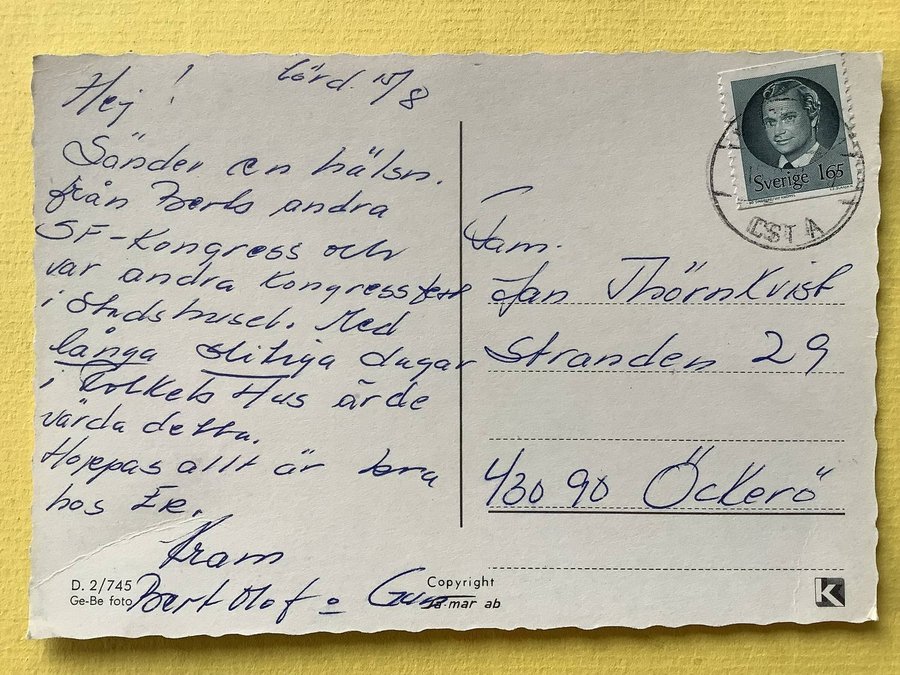 Hej! lörd. 15/8
Sänder en hälsn.
från Berts andra
SF-Kongress och
var andra Kongressfest
i Stadshuset. Med
långa slitiga dagar
i Folkets Hus är de
värda detta.
Hoppas allt är bra
hos Er.
Kram
Bert Olof o Gun
D. 2/745
Ge-Be foto
Copyright
mar ab
Sverige 165
STA
Fam.
Jan Thörnkvist
Stranden 29
430 90 Öckerö
K